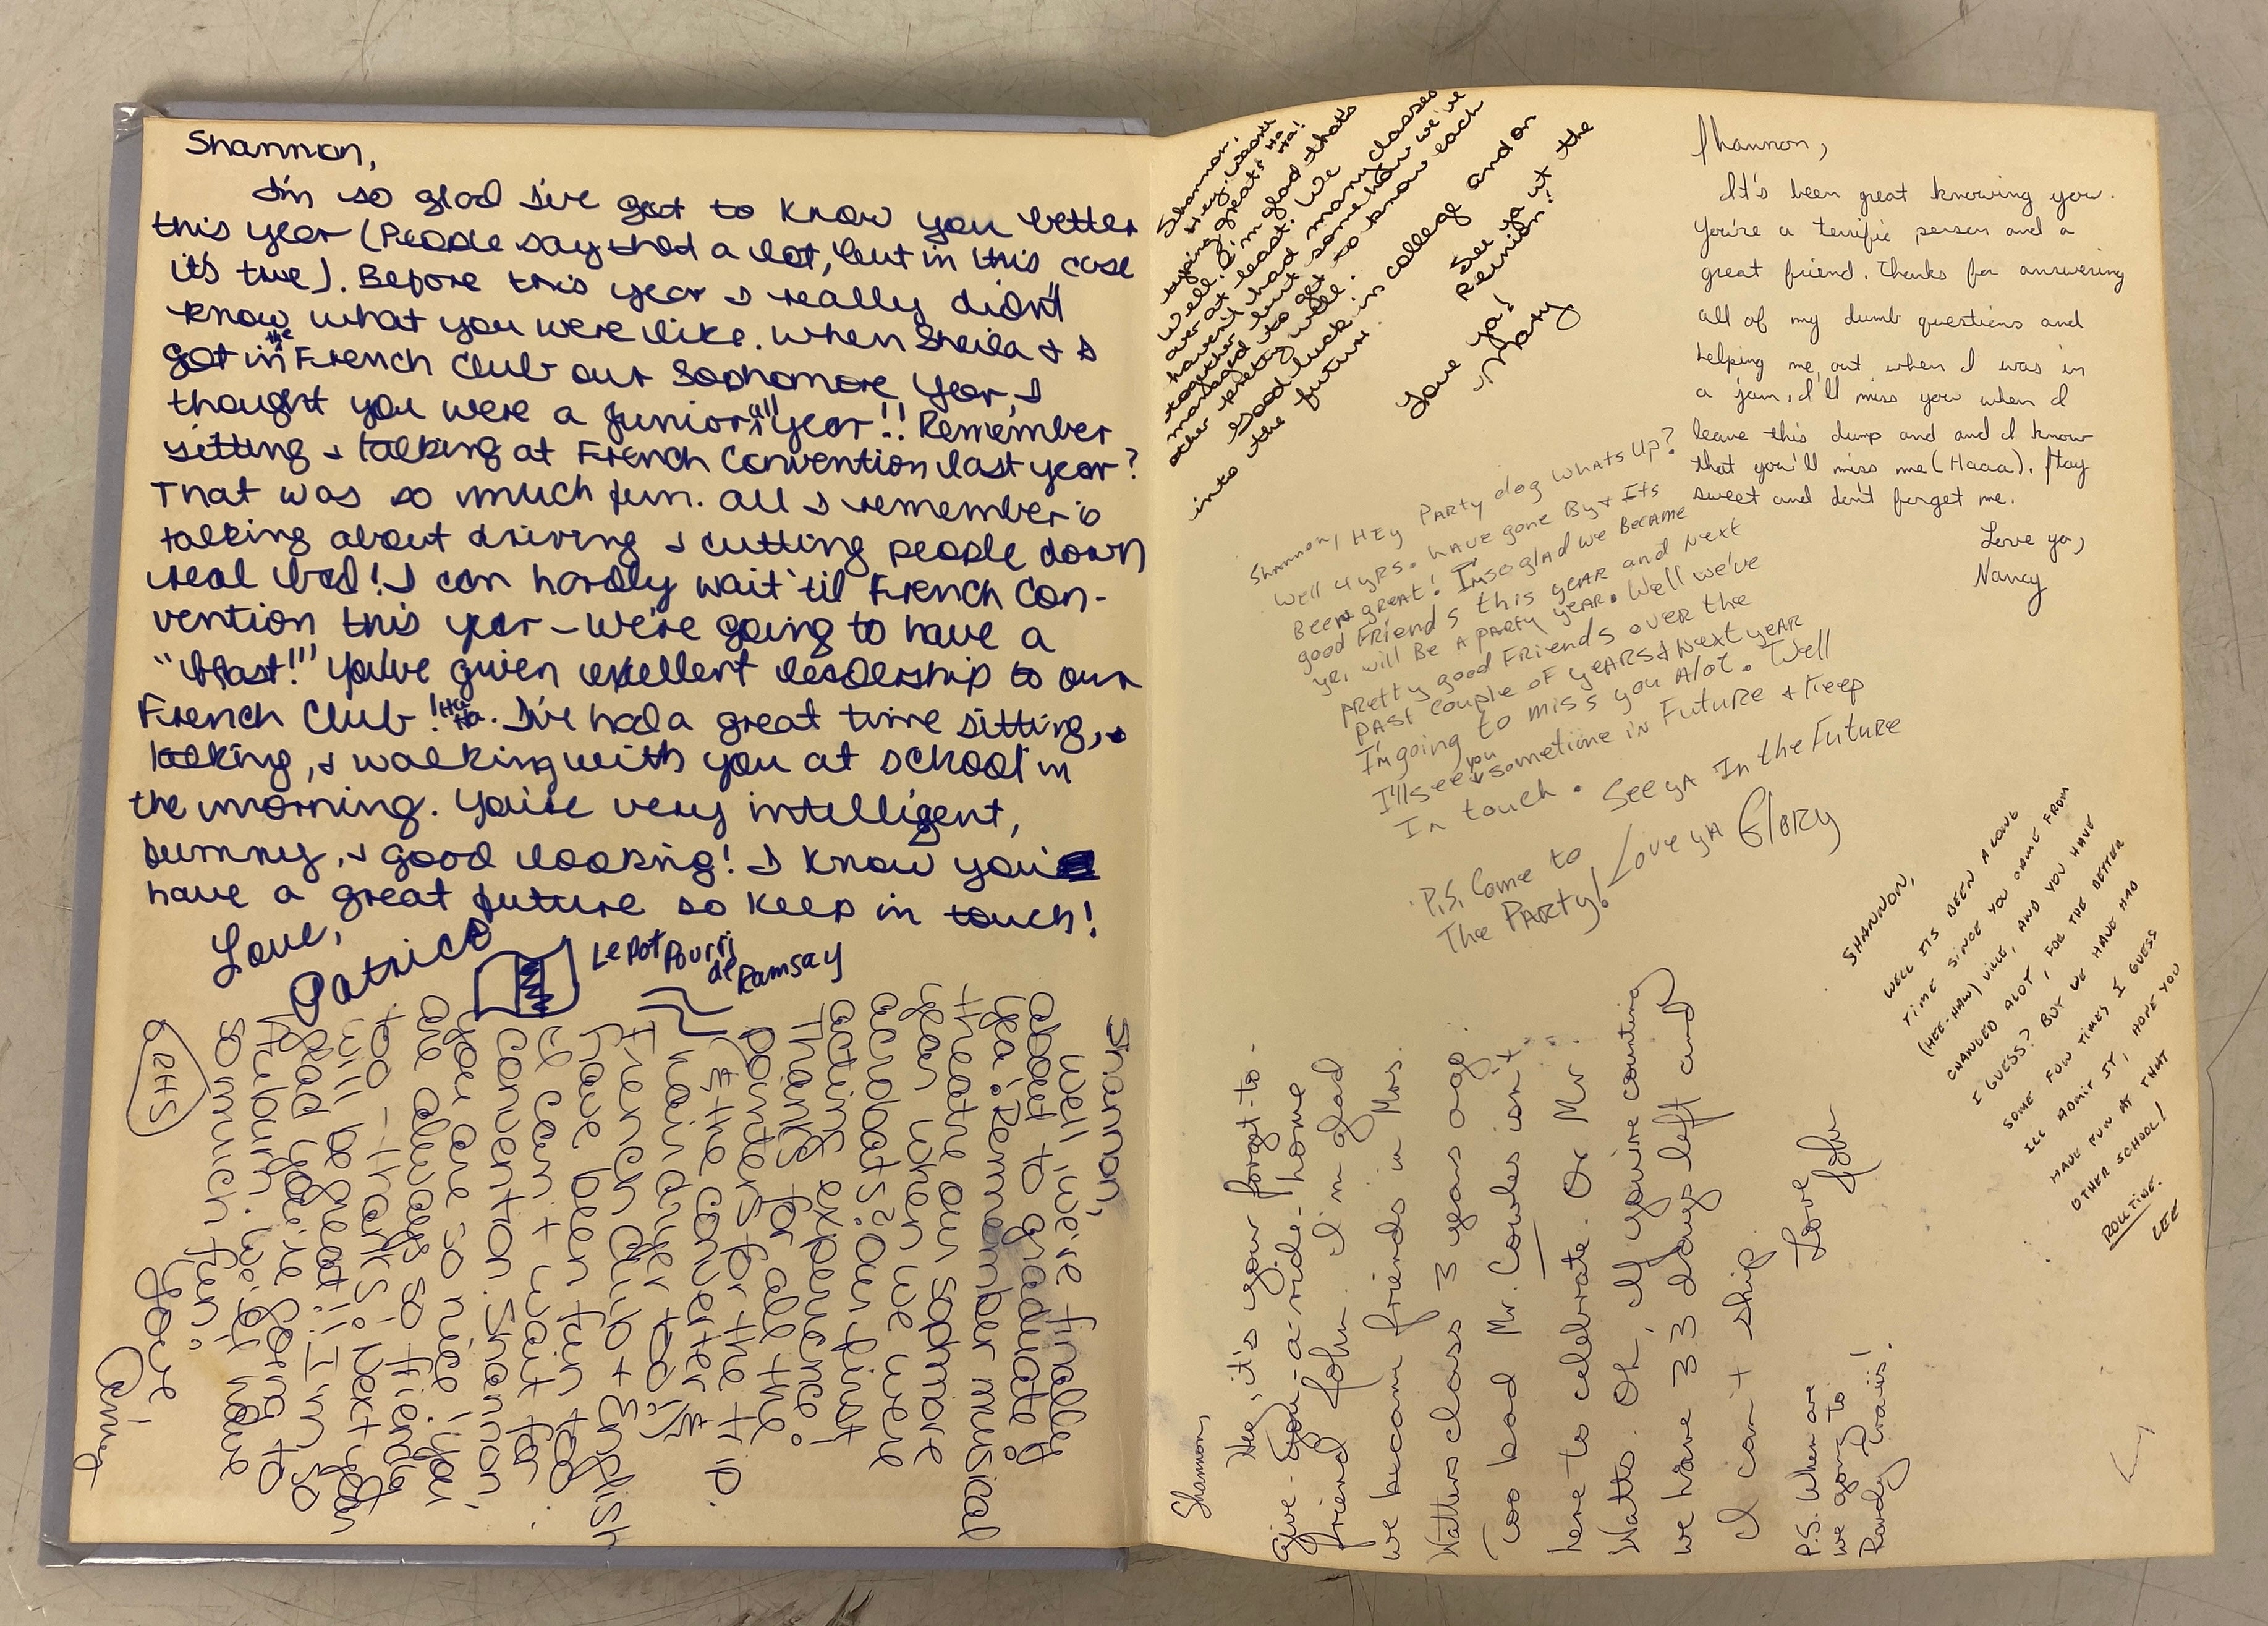 Shannon,
I'm so glad I've got to know you better
this year (People say that a lot, but in this case
it's true). Before this year I really didn't
know what you were like. When Sheila & I
got in the French Club our Sophomore year, I
thought you were a junior all year!! Remember
sitting & talking at French Convention last year?
That was so much fun. All I remember is
talking about driving & cutting people down
real bad! I can hardly wait 'til French Con-
vention this year - we're going to have a
"blast!!" You've given excellent leadership to our
French Club! Ha Ha. I've had a great time sitting, &
talking, & walking with you at school in
the morning. You're very intelligent,
funny, & good looking! I know you'll
have a great future so keep in touch!
Love,
Patrice
Le Pot Pourri
de Ramsay
Shannon,
Well, we're finally
about to graduate!
Yea! Remember musical
theatre our sopmore
year when we were
acrobats? Our first
acting experience!
Thanks for all the
pointers for the trip.
(& the converter &
hairdryer too!)
French Club & English
have been fun too
I can't wait for
convention. Shannon
you are so nice! you
are always so friendly
too - thanks! Next year
will be great!! I'm so
glad you're going to
Auburn. We'll have
so much fun!
You're
RHS
Shannon,
Hey, Wasn't
typing great? Ha Ha!
Well, I'm glad that's
over at least! We
haven't had many classes
together but somehow we've
managed to get to know each
other pretty well!
Good luck in college and on
into the future.
See ya at the
reunion!
Love ya!
Mary
Shannon,
It's been great knowing you.
You're a terrific person and a
great friend. Thanks for answering
all of my dumb questions and
helping me out when I was in
a jam, I'll miss you when I
leave this dump and and I know
that you'll miss me (Haaa). Stay
sweet and don't forget me.
Love ya,
Nancy
Shannon, Hey Party dog Whats Up?
Well 4 yrs. have gone By & Its
Been great! I'm so glad we Became
good Friends this year and Next
yr. will Be A party year. Well we've
pretty good Friends over the
past couple of years & Next year
I'm going to miss you Alot. Well
I'll see you sometime in Future & Keep
In touch. See ya In the Future
Love ya Glory
P.S. Come to
The Party!
SHANNON,
WELL ITS BEEN A LONG
TIME SINCE YOU CAME FROM
(HEE-HAW) VILLE, AND YOU HAVE
CHANGED ALOT, FOR THE BETTER
I GUESS? BUT WE HAVE HAD
SOME FUN TIMES I GUESS
ILL ADMIT IT, HOPE YOU
HAVE FUN AT THAT
OTHER SCHOOL!
ROUTINE.
LEE
Shannon,
Hey, it's your forget-to-
Give-You-a-ride-home
friend John. I'm glad
we became friends in Mrs.
Watters class 3 years ago.
Too bad Mr. Cowles isn't
here to celebrate. Or Mr
Watts. Oh, if you're counting
we have 33 days left and
I can't skip.
Love
John
P.S. When are
we going to